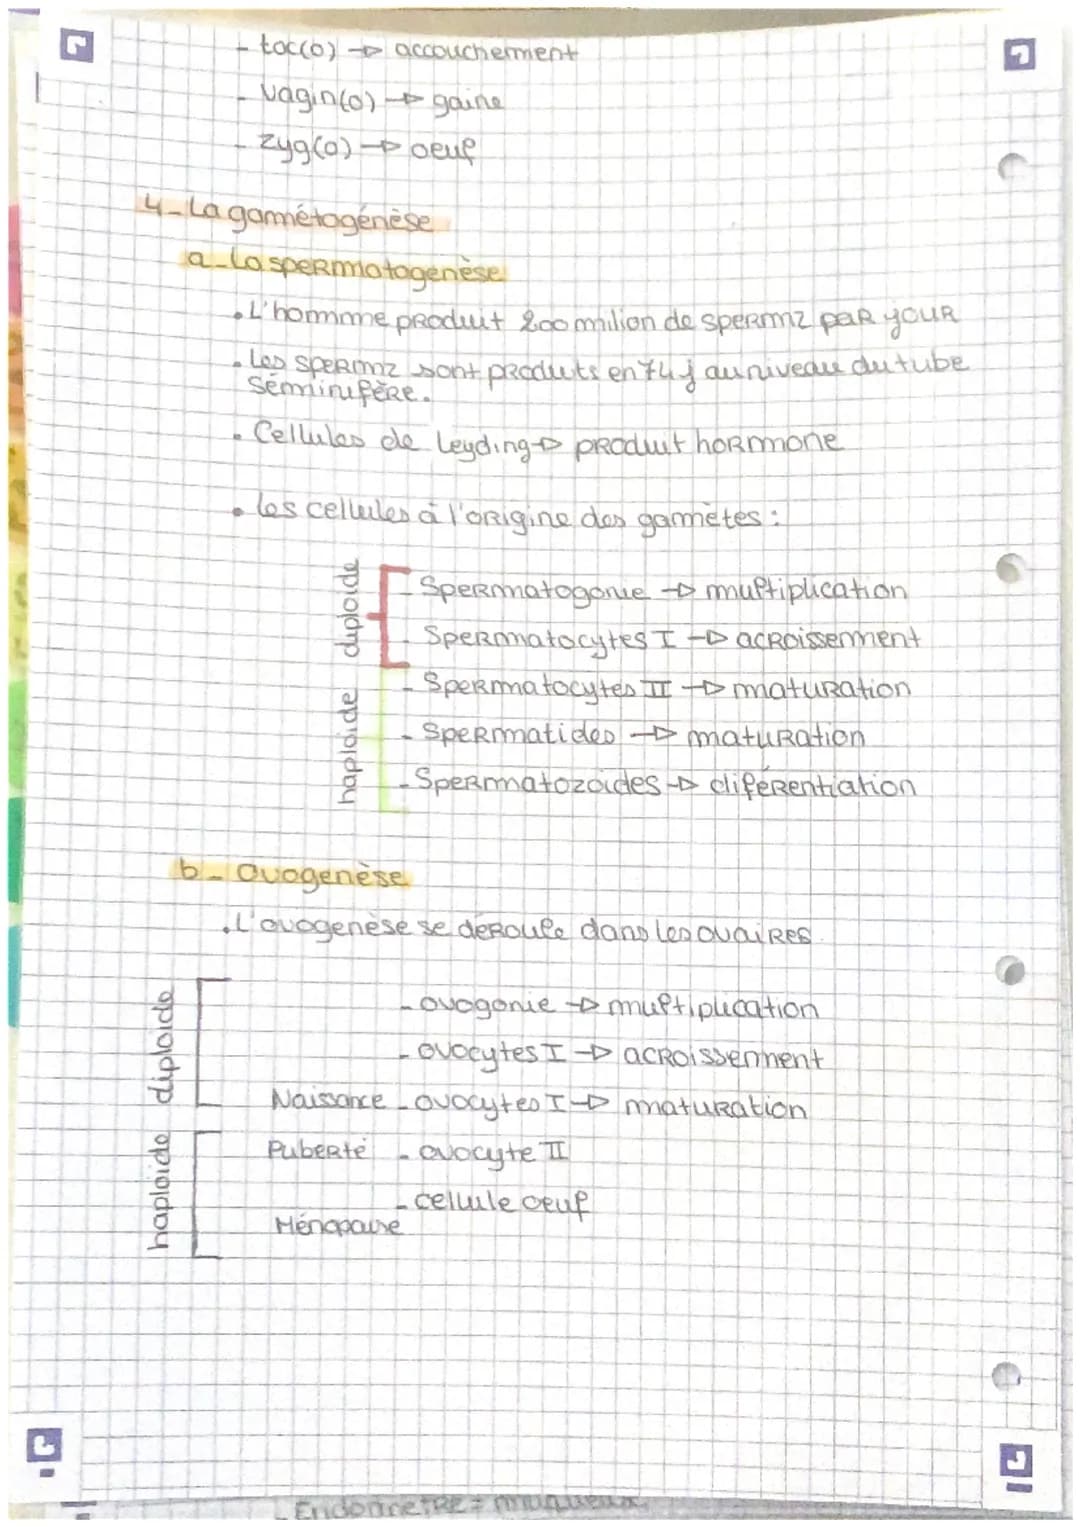 - toc(o) → accouchement
- Vagin(o) → gaine
- zyg(o) → oeuf
4 - La gamétogénèse
a - La spermatogenèse
. L'homme produit 200 milion de spermz par jour
. Les spermz sont produits en 74 j au niveau du tube
séminifère.
. Cellules de Leyding → produit hormone
. Les cellules à l'origine des gamètes :
diploide
- Spermatogonie → multiplication
- Spermatocytes I → acroissement
haploide
- Spermatocytes II → maturation
- Spermatides → maturation
- Spermatozoides → diférentiation
b - Ovogenèse
. L'ovogenèse se déroule dans les ovaires
diploide
- ovogonie → multiplication
- ovocytes I → acroissement
Naissance - ovocytes I → maturation
haploide
Puberté - ovocyte II
- cellule oeuf
Ménopause
- Endomètre = muqueux